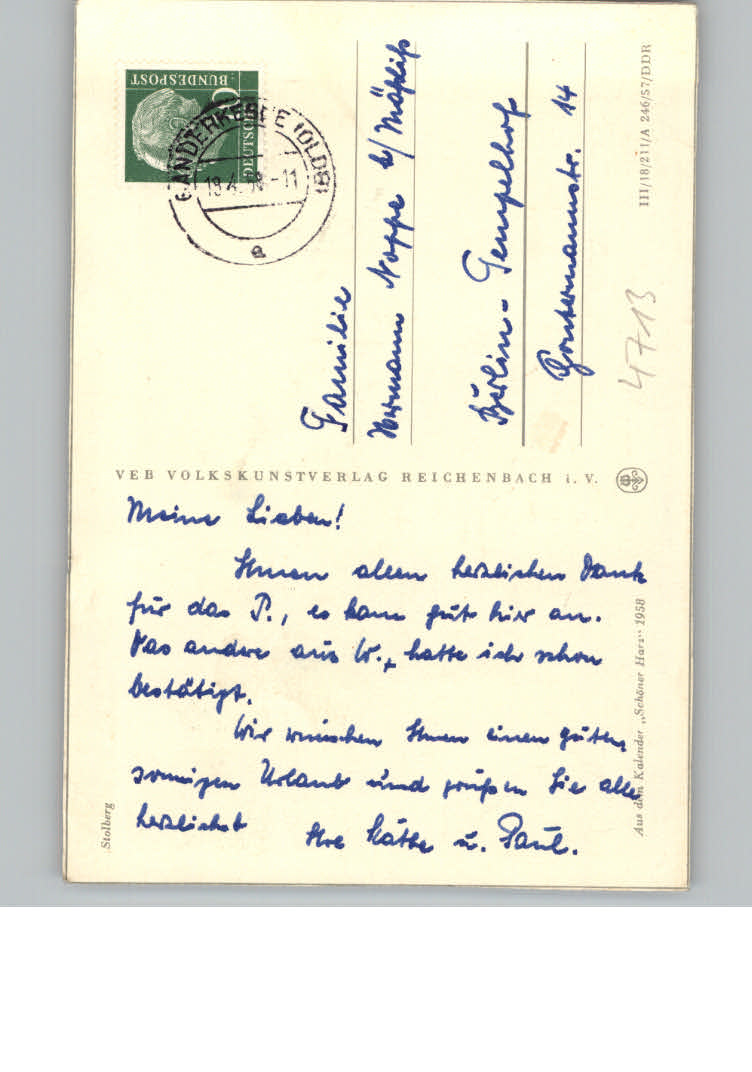 DEUTSCHE
BUNDESPOST
GANDERKESEE (OLDB)
18.4.58-11
a
Familie
Hermann Noppe b/
Berlin-Tempelhof
Gontermannstr. 14
III/18/211/A 246/57/DDR
4713
VEB VOLKSKUNSTVERLAG REICHENBACH i. V.
Meine Lieben!
Ihnen allen herzlichen Dank
für das P., es kam gut hier an.
Das andere aus W., hatte ich schon
bestätigt.
Wir wünschen Ihnen einen guten,
sonnigen Urlaub und grüßen Sie alle
herzlichst Ihre Käthe u. Paul.
Stolberg
Aus dem Kalender „Schöner Harz“ 1958